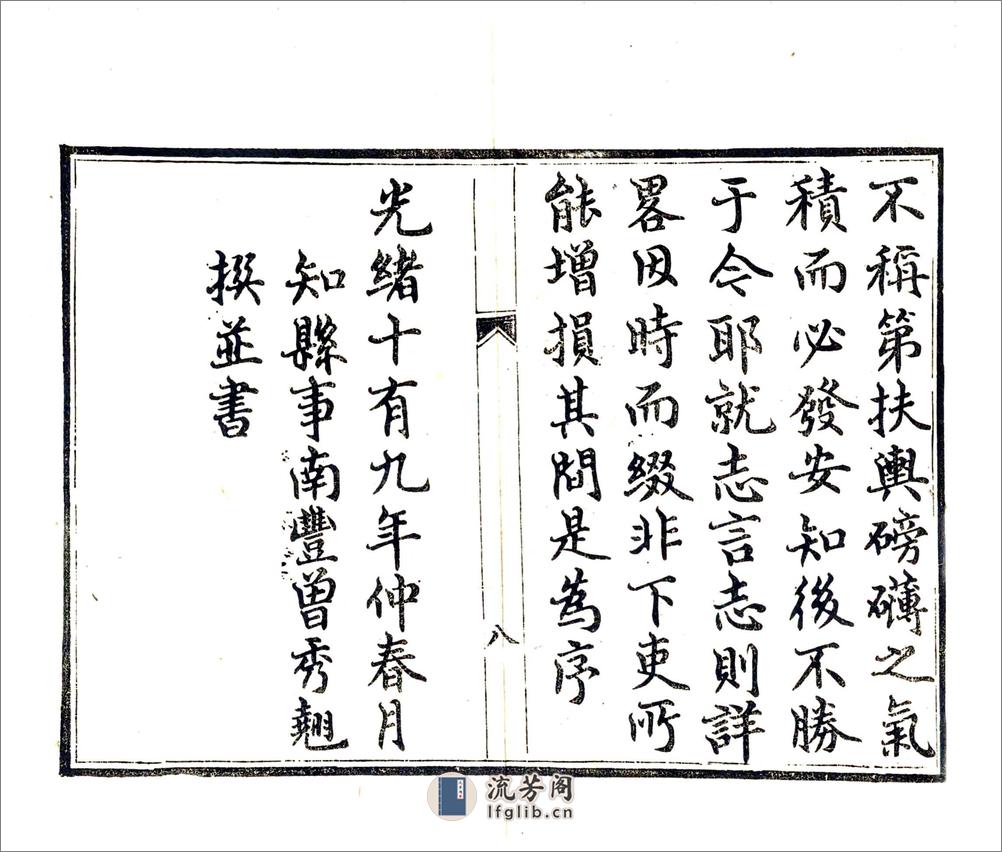 不稱第扶輿磅礴之氣
積而必發安知後不勝
于今耶就志言志則詳
畧因時而綴非下吏所
能增損其間是為序
八
光緒十有九年仲春月
知縣事南豐曾秀翹
撰並書
流芳阁
lfglib.cn